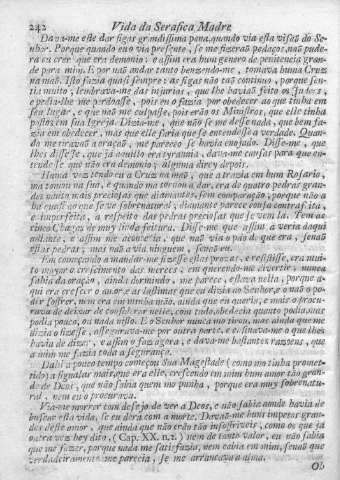 242 Vida da Serafica Madre
Dava-me este dar figas grandissima pena, quando via esta visaõ do Se-
nhor. Porque quando eu o via presente, se me fizeraõ pedaços, naõ pude-
ra eu crer que era demonio: e assim era hum genero de penitencia gran-
de para mim. E por naõ andar tanto benzendo-me, tomava huma Cruz
na maõ. Isto fazia quasi sempre: as figas naõ taõ continuo, porque sen-
tia muito; lembrava-me das injurias, que lhe haviaõ feito os Judeos,
e pedia-lhe me perdoasse, pois eu o fazia por obedecer ao que tinha em
seu lugar, e que naõ me culpasse, pois eraõ os Ministros, que elle tinha
postos em sua Igreja. Dizia-me, que naõ se me desse nada, que bem fa-
zia em obedecer, mas que elle faria que se entendesse a verdade. Quan-
do me tiravaõ a oraçaõ, me pareceo se havia enojado. Disse-me, que
lhes dissesse, que já aquillo era tyrannia, dava-me causas para que en-
tendesse que naõ era demonio; alguma direy depois.
Huma vez tendo eu a Cruz na maõ, que a trazia em hum Rosario,
ma tomou na sua, e quando ma tornou a dar, era de quatro pedras gran-
des muito mais preciosas que diamantes, sem comparaçaõ, porque naõ a
ha quasi ao que se vio sobrenatural; diamante parece cousa contrafeita,
e imperfeita, a respeito das pedras preciosas que se vem la. Tem as
cinco Chagas de muy linda feitura. Disse-me que assim a veria daqui
adiante, e assim me acontecia, que naõ via o páo de que era, senaõ
estas pedras, mas naõ a via ninguem, senaõ eu.
Em começando a mandar-me fizesse estas provas, e resistisse, era mui-
to mayor o crescimento das merces; em querendo-me divertir, nunca
sahia da oraçaõ, ainda dormindo, me parece, estava nella, porque a-
qui era crescer o amor, e as lastimas que eu dizia ao Senhor, e o naõ o po-
der soffrer, nem era em minha maõ, ainda que eu queria, e mais o procu-
rava de deixar de considerar nelle, com tudo, obedecia quanto podia, mas
podia pouco, ou nada nisso. E o Senhor nunca mo tirou, mas ainda que me
dizia o fizesse, assegurava-me por outra parte, e ensinava-me o que lhes
havia de dizer, e assim o faz agora, e dava-me bastantes razoens, que
a mim me fazia toda a segurança.
Dahi a pouco tempo começou Sua Magestade (como mo tinha promet-
tido) a signalar mais que era elle, crescendo em mim hum amor taõ gran-
de de Deos, que naõ sabia quem mo punha, porque era muy sobrenatu-
ral, nem eu o procurava.
Via-me morrer com desejo de ver a Deos, e naõ sabia aonde havia de
buscar esta vida, se eu dera com a morte. Davaõ-me huns impetos gran-
des deste amor, que ainda que naõ eraõ taõ insoffriveis, como os que já
outra vez hey dito, (Cap. XX. n.7.) nem de tanto valor, eu naõ sabia
que me fazer, porque nada me satisfazia, nem cabia em mim, senaõ que
verdadeiramente me parecia, se me arrancava a alma.
Oh